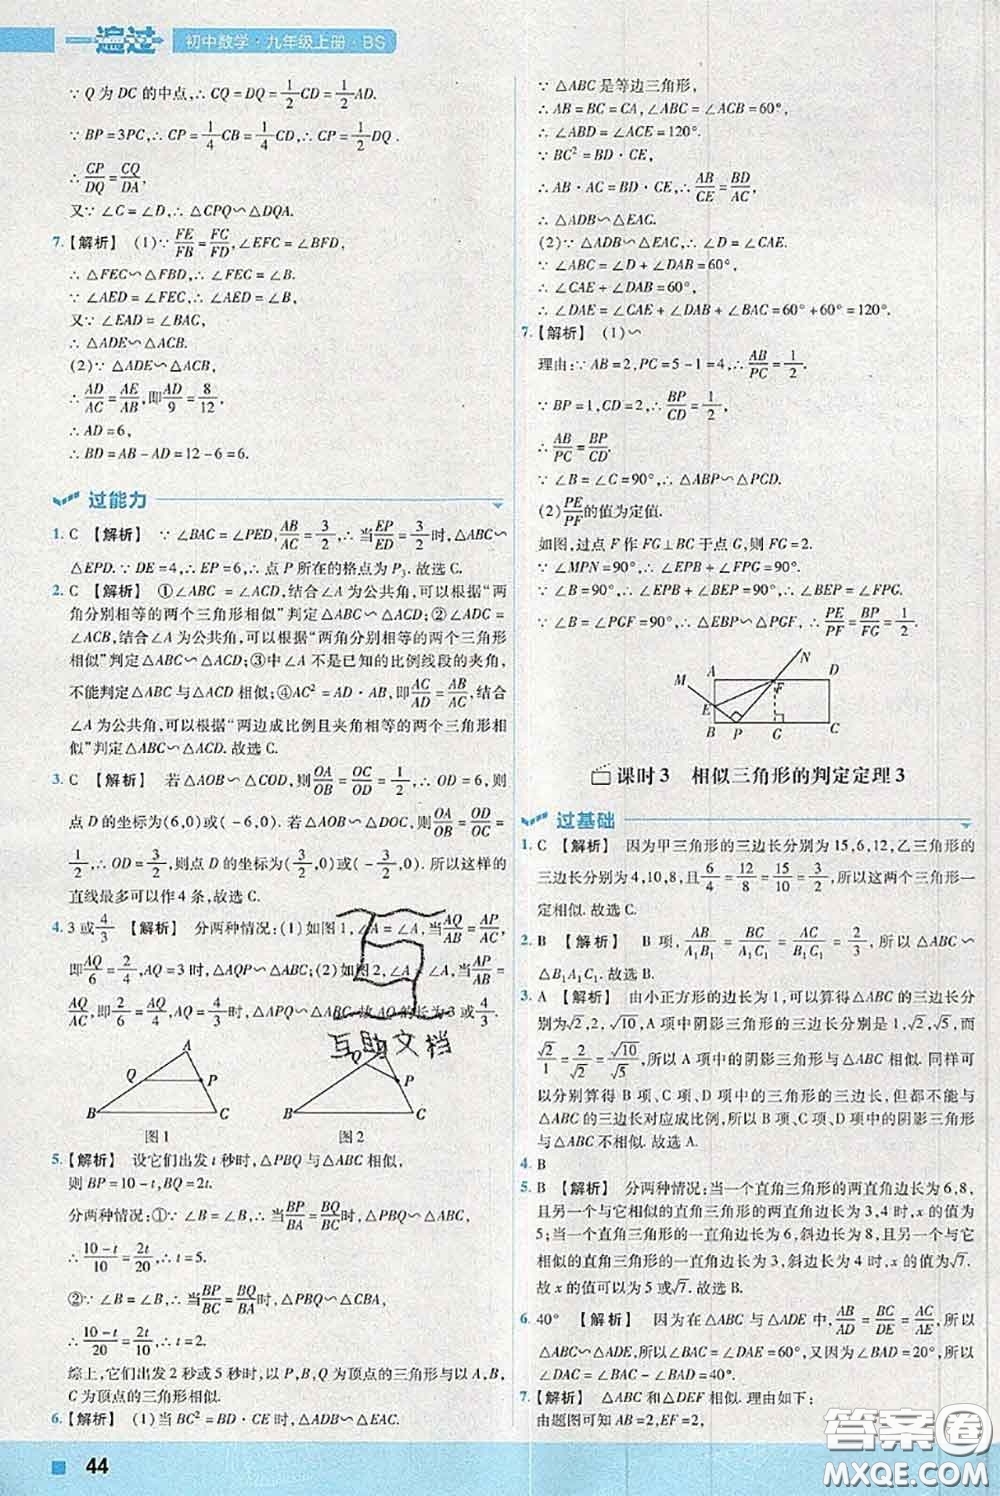 一遍过 初中数学·九年级上册·BS
∵ Q 为 DC 的中点,∴ CQ = DQ = 1/2 CD = 1/2 AD.
∵ BP = 3PC,∴ CP = 1/4 CB = 1/4 CD,∴ CP = 1/2 DQ.
∴ CP/DQ = CQ/DA,
又∵ ∠C = ∠D,∴ △CPQ∽△DQA.
7.【解析】 (1)∵ FE/FB = FC/FD,∠EFC = ∠BFD,
∴ △FEC∽△FBD,∴ ∠FEC = ∠B.
∵ ∠AED = ∠FEC,∴ ∠AED = ∠B,
又∵ ∠EAD = ∠BAC,
∴ △ADE∽△ACB.
(2)∵ △ADE∽△ACB,
∴ AD/AC = AE/AB,即 AD/9 = 8/12,
∴ AD = 6,
∴ BD = AB - AD = 12 - 6 = 6.
过能力
1. C 【解析】 ∵ ∠BAC = ∠PED, AB/AC = 3/2,∴ 当 EP/ED = 3/2 时,△ABC∽
△EPD. ∵ DE = 4,∴ EP = 6,∴ 点 P 所在的格点为 P₃. 故选 C.
2. C 【解析】 ①∠ABC = ∠ACD,结合∠A 为公共角,可以根据“两
角分别相等的两个三角形相似”判定△ABC∽△ACD;②∠ADC =
∠ACB,结合∠A 为公共角,可以根据“两角分别相等的两个三角形
相似”判定△ABC∽△ACD;③中∠A 不是已知的比例线段的夹角,
不能判定△ABC 与△ACD 相似;④AC² = AD · AB,即 AC/AD = AB/AC,结合
∠A 为公共角,可以根据“两边成比例且夹角相等的两个三角形相
似”判定△ABC∽△ACD. 故选 C.
3. C 【解析】 若△AOB∽△COD,则 OA/OC = OB/OD
点 D 的坐标为(6,0)或(-6,0). 若△AOB∽△DOC,则 OA/OB = OD/OC
1/2,∴ OD = 3/2,则点 D 的坐标为(3/2,0)或(-3/2,0). 所以这样的
直线最多可以作 4 条,故选 C.
4. 3 或 4/3 【解析】 分两种情况:(1)如图 1,∠A = ∠A,当 AQ/AB = AP/AC,
即 AQ/6 = 2/4,AQ = 3 时,△AQP∽△ABC;(2)如图 2,∠A = ∠A,当 AP/AB =
AQ/AC,即 2/6 = AQ/4,AQ = 4/3 时,△APQ∽△ABC. 故 AQ 的长为 3 或 4/3.
互助文档
A Q P B C
A Q P B C
图 1 图 2
5.【解析】 设它们出发 t 秒时,△PBQ 与△ABC 相似,
则 BP = 10 - t,BQ = 2t.
分两种情况:①∵ ∠B = ∠B,∴ 当 BP/BA = BQ/BC 时,△PBQ∽△ABC,
∴ (10-t)/10 = 2t/20,∴ t = 5.
②∵ ∠B = ∠B,∴ 当 BP/BC = BQ/BA 时,△PBQ∽△CBA,
∴ (10-t)/20 = 2t/10,∴ t = 2.
综上,它们出发 2 秒或 5 秒时,以 P,B,Q 为顶点的三角形与以 A,B,
C 为顶点的三角形相似.
6.【解析】 (1)当 BC² = BD · CE 时,△DAB∽△AEC.
44
∵ △ABC 是等边三角形,
∴ AB = BC = CA,∠ABC = ∠ACB = 60°,
∴ ∠ABD = ∠ACE = 120°.
∵ BC² = BD · CE,
∴ AB · AC = BD · CE,∴ AB/CE = BD/AC,
∴ △DAB∽△AEC.
(2)∵ △DAB∽△EAC,∴ ∠D = ∠CAE.
∵ ∠ABC = ∠D + ∠DAB = 60°,
∴ ∠CAE + ∠DAB = 60°,
∴ ∠DAE = ∠CAE + ∠DAB + ∠BAC = 60° + 60° = 120°.
7.【解析】 (1)∽
理由:∵ AB = 2,PC = 5 - 1 = 4,∴ AB/PC = 1/2.
∵ BP = 1,CD = 2,∴ BP/CD = 1/2,
∴ AB/PC = BP/CD.
∵ ∠B = ∠C = 90°,∴ △ABP∽△PCD.
(2) PE/PF 的值为定值.
如图,过点 F 作 FG⊥BC 于点 G,则 FG = 2.
∵ ∠MPN = 90°,∴ ∠BPE + ∠FPG = 90°.
∵ ∠BPE + ∠BEP = 90°,∴ ∠BEP = ∠FPG.
∵ ∠B = ∠PGF = 90°,∴ △EBP∽△PGF,∴ PE/PF = BP/FG = 1/2.
M A E B P G C D F N
课时 3 相似三角形的判定定理 3
过基础
1. C 【解析】 因为甲三角形的三边长分别为 15,6,12,乙三角形的
三边长分别为 4,10,8,且 6/4 = 12/8 = 15/10 = 3/2,所以这两个三角形一
定相似. 故选 C.
2. B 【解析】 B 项, AB/A₁B₁ = BC/A₁C₁ = AC/B₁C₁ = 2/3,所以△ABC∽
△B₁A₁C₁. 故选 B.
3. A 【解析】 由小正方形的边长为 1,可以算得△ABC 的三边长分
别为√2,2,√10,A 项中阴影三角形的三边长分别为 1,√2,√5,而
√2/1 = 2/√2 = √10/√5,所以 A 项中的阴影三角形与△ABC 相似. 同样可
以分别算得 B 项、C 项、D 项中的三角形的三边长,但都不能与
△ABC 的三边长对应成比例,所以 B 项、C 项、D 项中的阴影三角形
与△ABC 不相似. 故选 A.
4. B
5. B 【解析】 分两种情况:当一个直角三角形的两直角边长为 6,8,
且另一个与它相似的直角三角形的两直角边长为 3,4 时,x 的值为
5;当一个直角三角形的一直角边长为 6,斜边长为 8,另一个与它
相似的直角三角形的一直角边长为 3,斜边长为 4 时,x 的值为√7.
故 x 的值可以为 5 或√7. 故选 B.
6. 40° 【解析】 因为在△ABC 与△ADE 中, AB/AD = BC/DE = AC/AE,所以
△ABC∽△ADE,所以∠BAC = ∠DAE,所以∠BAD = ∠BAC -
∠DAC = ∠DAE - ∠DAC = ∠CAE,所以∠CAE = ∠BAD = 40°.
7.【解析】 △ABC 和△DEF 相似. 理由如下:
由题图可知 AB = 2,EF = 2,
答案圈
MXQE.COM